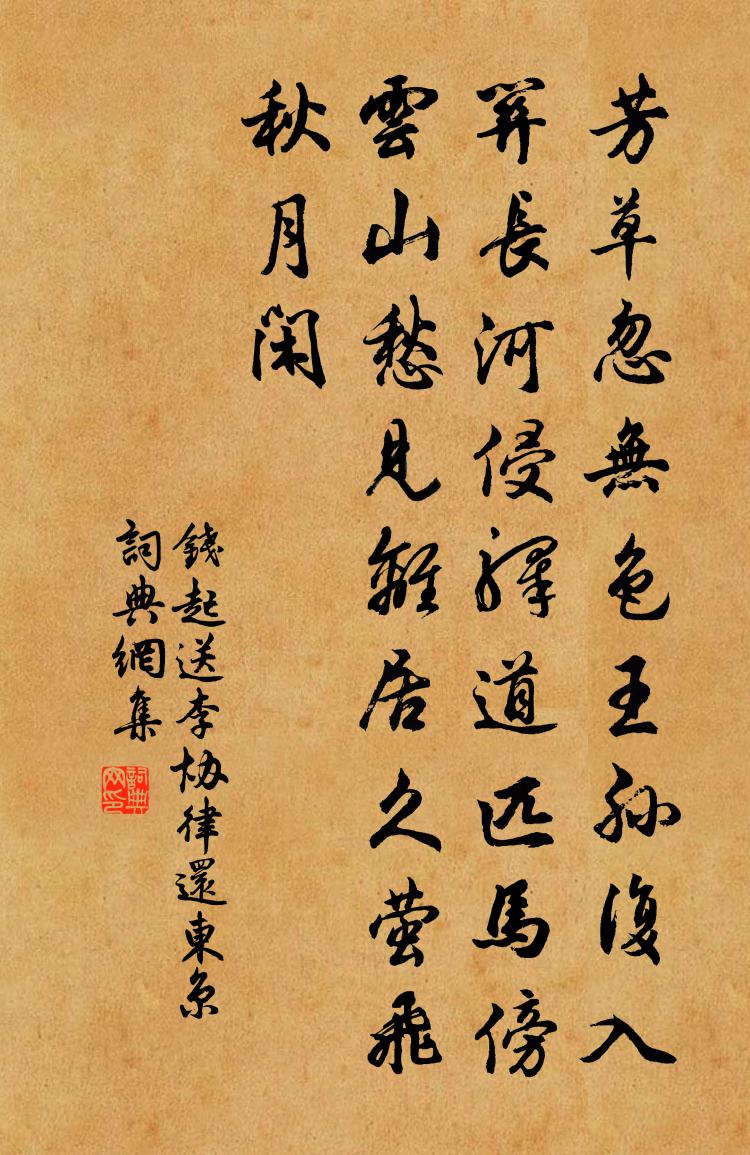 芳草忽無色王孫復入
關長河侵驛道匹馬傍
雲山愁見離居久螢飛
秋月閑
錢起送李協律還東京
詞典網集
詞典网印